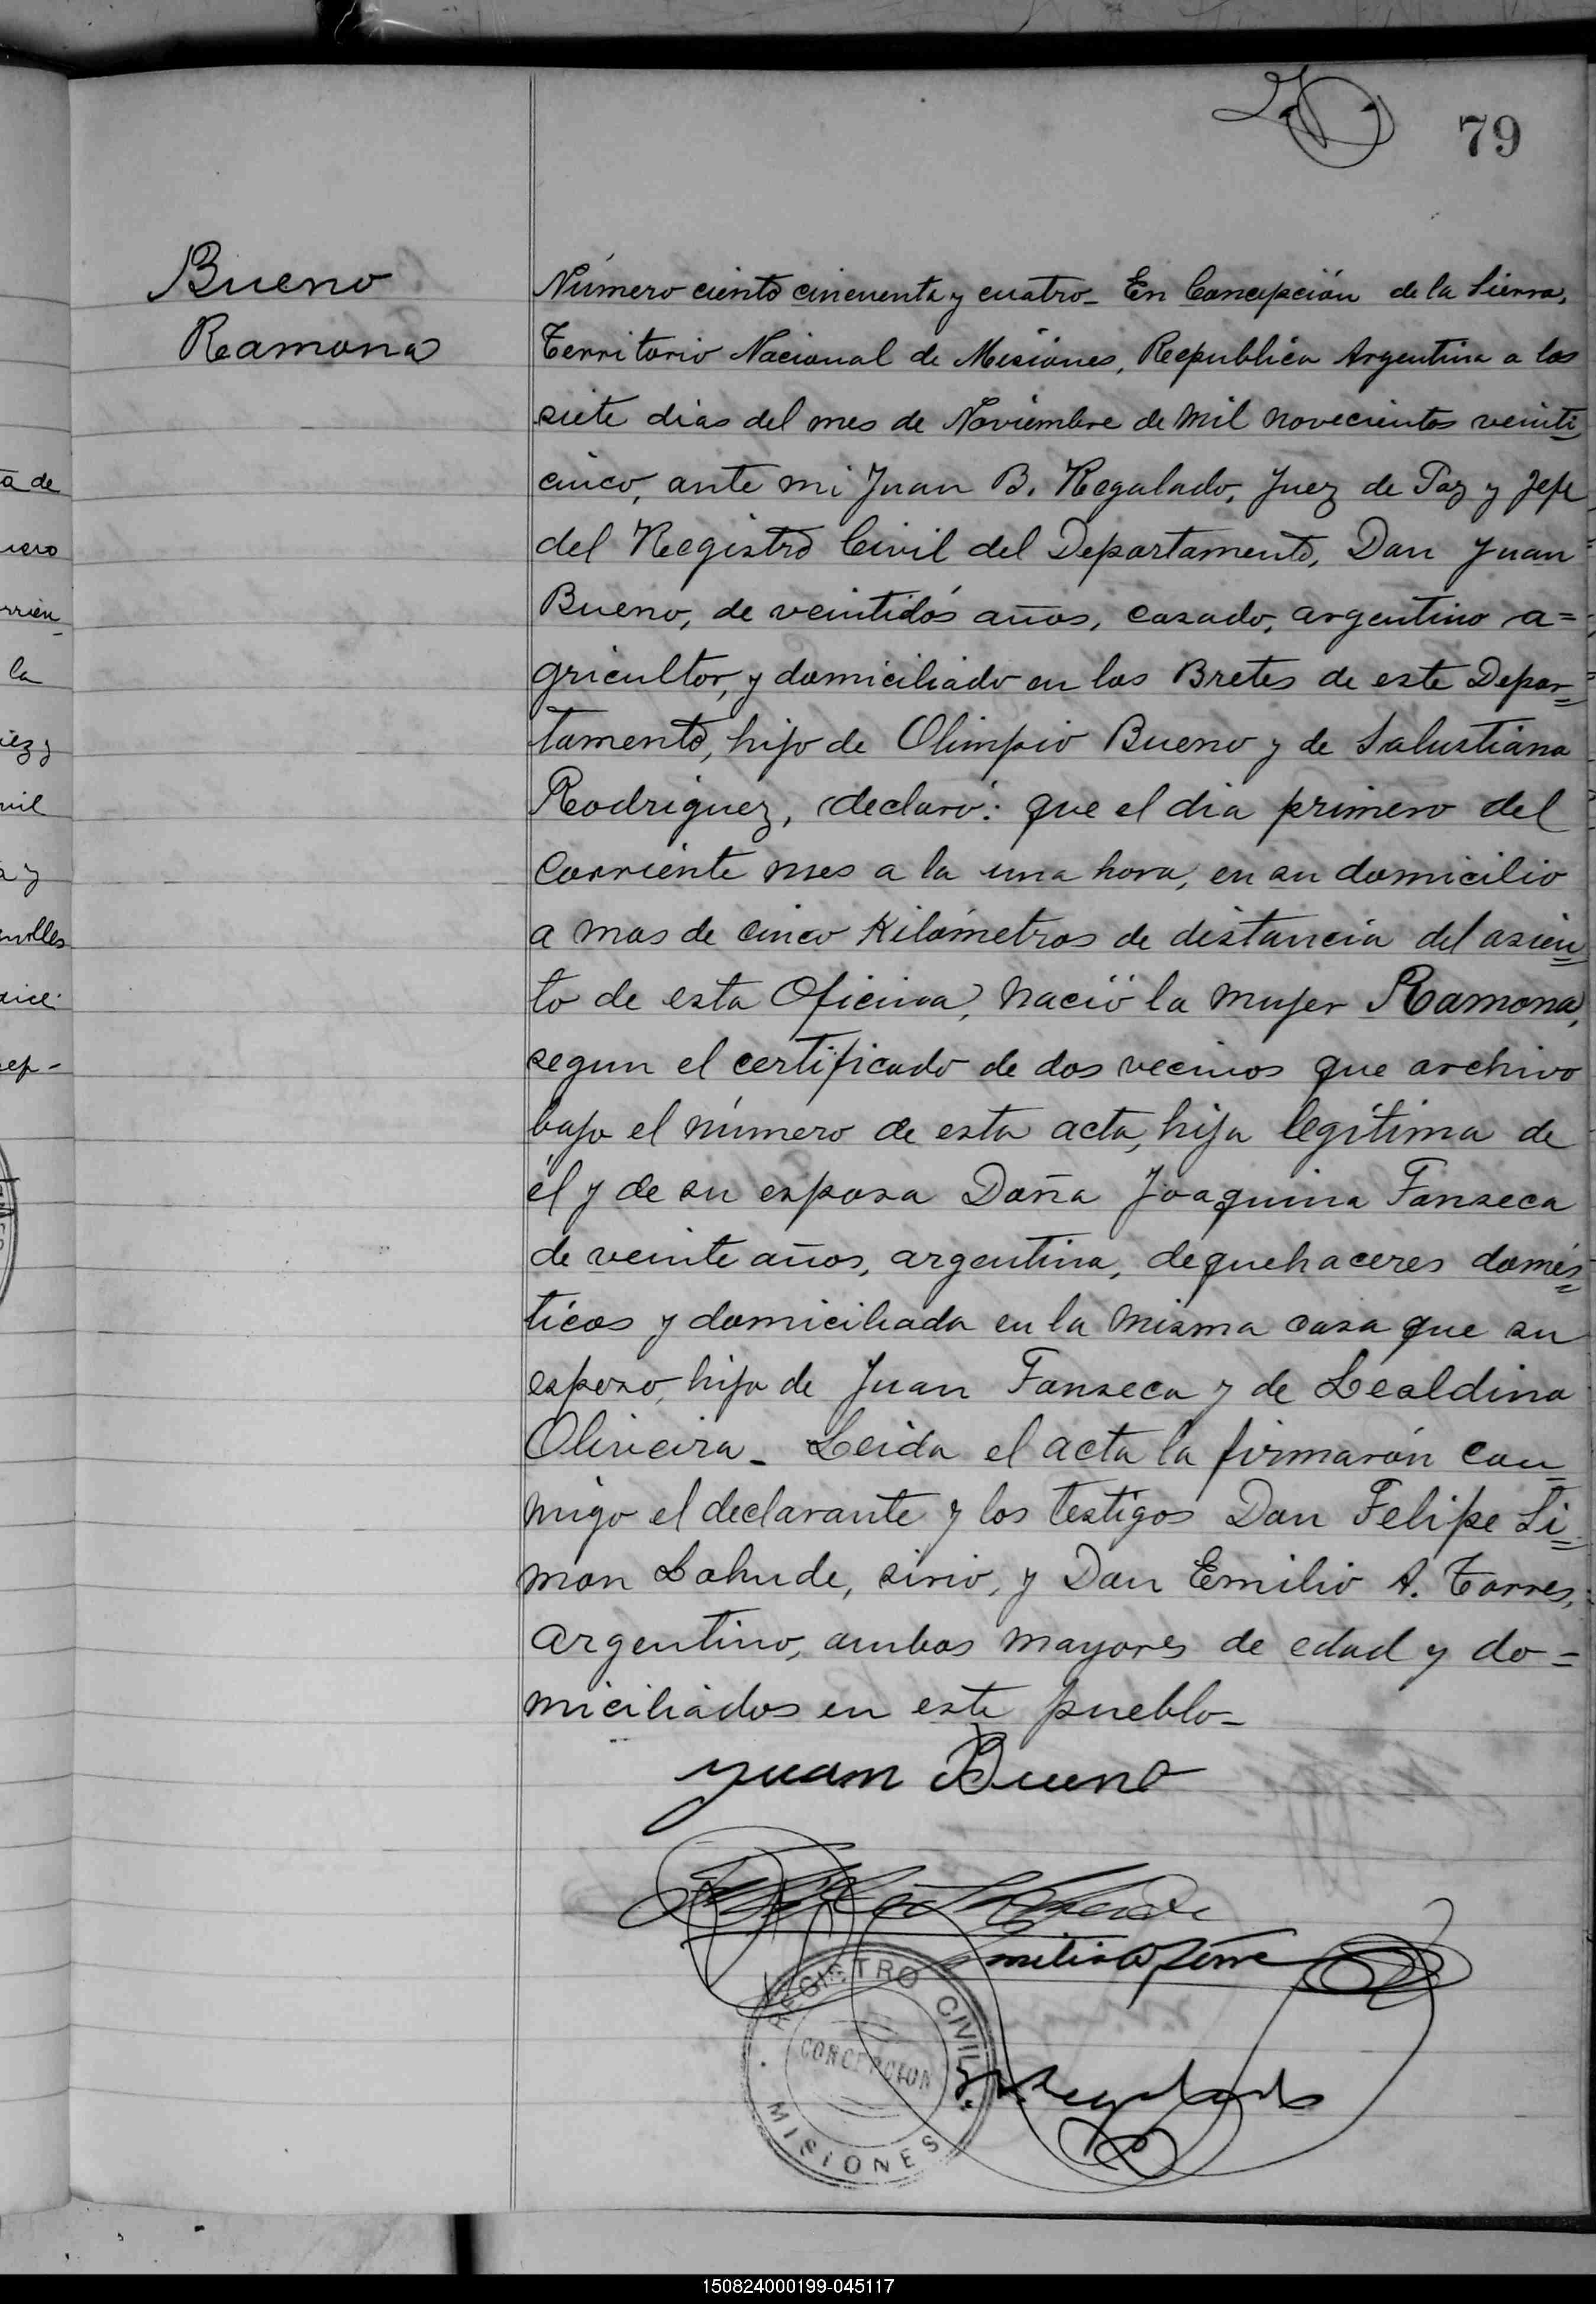 79
Bueno
Ramona
Número ciento cincuenta y cuatro_ En Concepción de la Sierra,
Territorio Nacional de Misiones, Republica Argentina a los
siete dias del mes de Noviembre de mil novecientos veinti
cinco, ante mi Juan B. Regalado, Juez de Paz y Jefe
del Registro Civil del Departamento, Don Juan
Bueno, de veintidós años, casado, argentino a=
gricultor, y domiciliado en los Bretes de este Depar=
tamento, hijo de Olimpio Bueno y de Salustiana
Rodriguez, declaró: que el dia primero del
corriente mes a la una hora, en su domicilio
a mas de cinco Kilómetros de distancia del asien=
to de esta Oficina, nació la mujer Ramona,
segun el certificado de dos vecinos que archivo
bajo el número de esta acta, hija legítima de
él y de su esposa Doña Joaquina Fonseca
de veinte años, argentina, de quehaceres domés=
ticos y domiciliada en la misma casa que su
esposo, hija de Juan Fonseca y de Lealdina
Oliveira_ Leida el acta la firmarón con_
migo el declarante y los testigos Don Felipe Si=
mon Lahude, sirio, y Don Emilio A. Torres,
argentino, ambos mayores de edad y do=
miciliados en este pueblo_
Juan Bueno
REGISTRO CIVIL
CONCEPCION
MISIONES
a de
la
mil
150824000199-045117